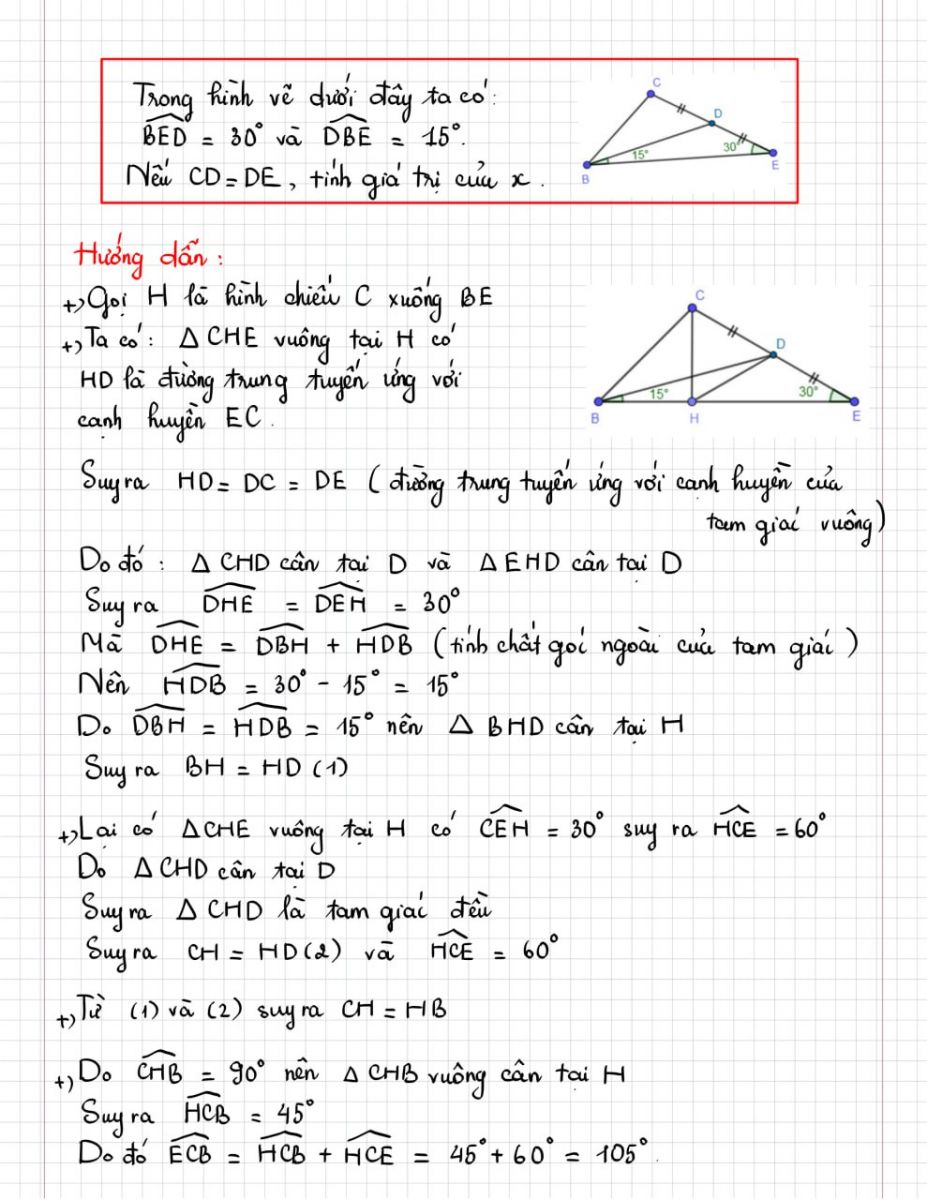 Trong hình vẽ dưới đây ta có:
BED = 30° và DBE = 15°.
Nếu CD = DE, tính giá trị của x.
C
D
15°
30°
B
E
Hướng dẫn:
+) Gọi H là hình chiếu C xuống BE
+) Ta có: Δ CHE vuông tại H có
HD là đường trung tuyến ứng với
cạnh huyền EC.
C
D
15°
30°
B
H
E
Suy ra HD = DC = DE (đường trung tuyến ứng với cạnh huyền của
tam giác vuông)
Do đó: Δ CHD cân tại D và Δ EHD cân tại D
Suy ra DHE = DEH = 30°
Mà DHE = DBH + HDB (tính chất góc ngoài của tam giác)
Nên HDB = 30° - 15° = 15°
Do DBH = HDB = 15° nên Δ BHD cân tại H
Suy ra BH = HD (1)
+) Lại có ΔCHE vuông tại H có CEH = 30° suy ra HCE = 60°
Do ΔCHD cân tại D
Suy ra Δ CHD là tam giác đều
Suy ra CH = HD (2) và HCE = 60°
+) Từ (1) và (2) suy ra CH = HB
+) Do CHB = 90° nên Δ CHB vuông cân tại H
Suy ra HCB = 45°
Do đó ECB = HCB + HCE = 45° + 60° = 105°.